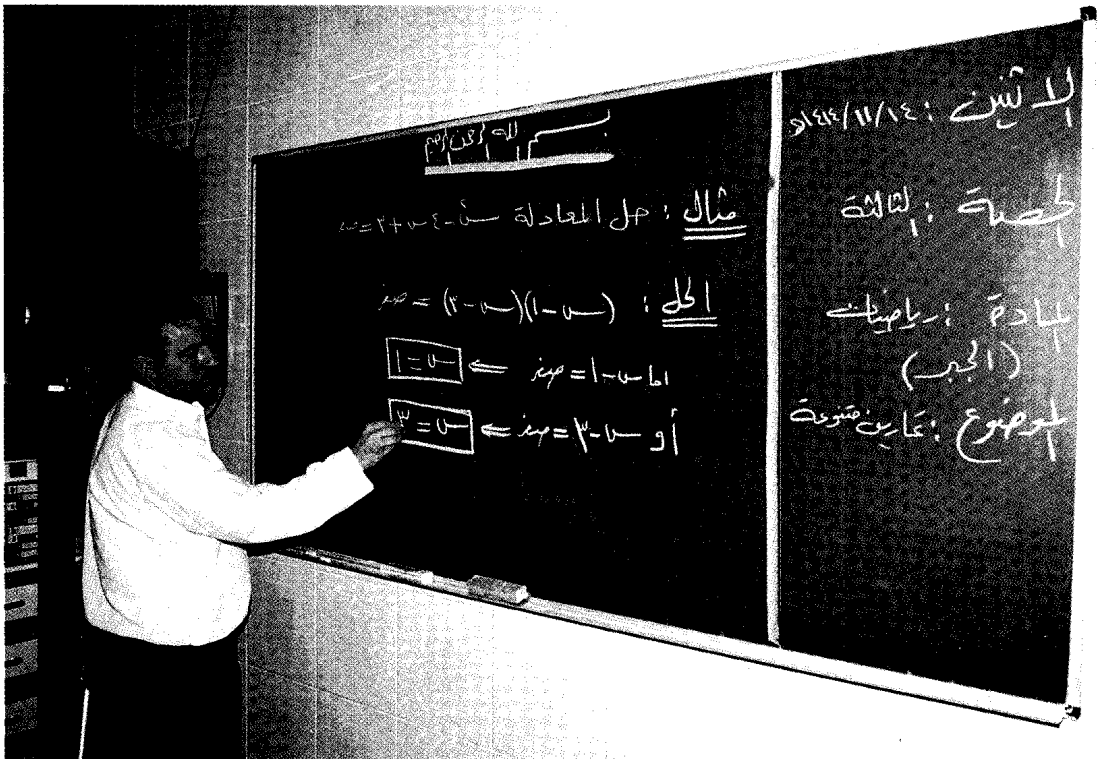 الاثنين : ١٤١٤/١١/١٤هـ
الحصة : الثالثة
المادة : رياضيات
(الجبر)
الموضوع : تمارين متنوعة
بسم الله الرحمن الرحيم
مثال : حل المعادلة س٢ - ٤س + ٣ = صفر
الحل : (س - ١)(س - ٣) = صفر
اما س - ١ = صفر ⇐ س = ١
أو س - ٣ = صفر ⇐ س = ٣